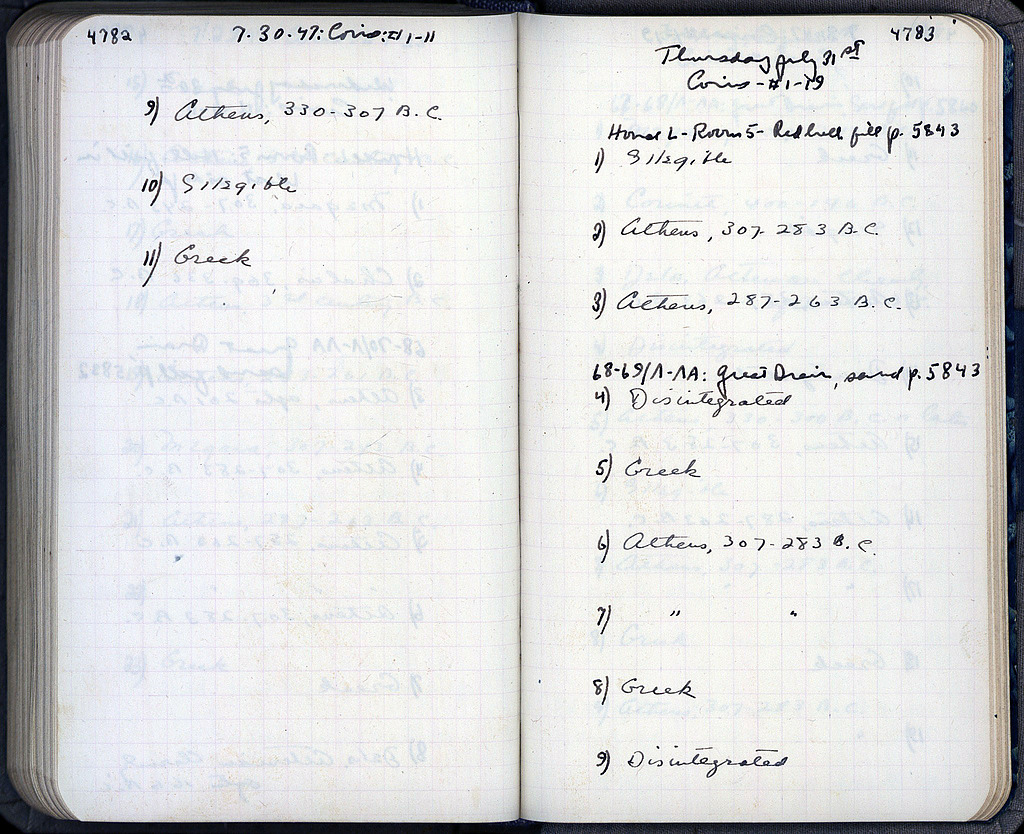 4782
7.30.47: Coins: #1-11
9) Athens, 330-307 B.C.
10) Illegible
11) Greek
4783
Thursday July 31st
Coins - #1-19
House L - Room 5 - Red hill fill p. 5843
1) Illegible
2) Athens, 307-283 B.C.
3) Athens, 287-263 B.C.
68-69/Λ-ΛΛ: Great Drain, sand p. 5843
4) Disintegrated
5) Greek
6) Athens, 307-283 B.C.
7) " "
8) Greek
9) Disintegrated